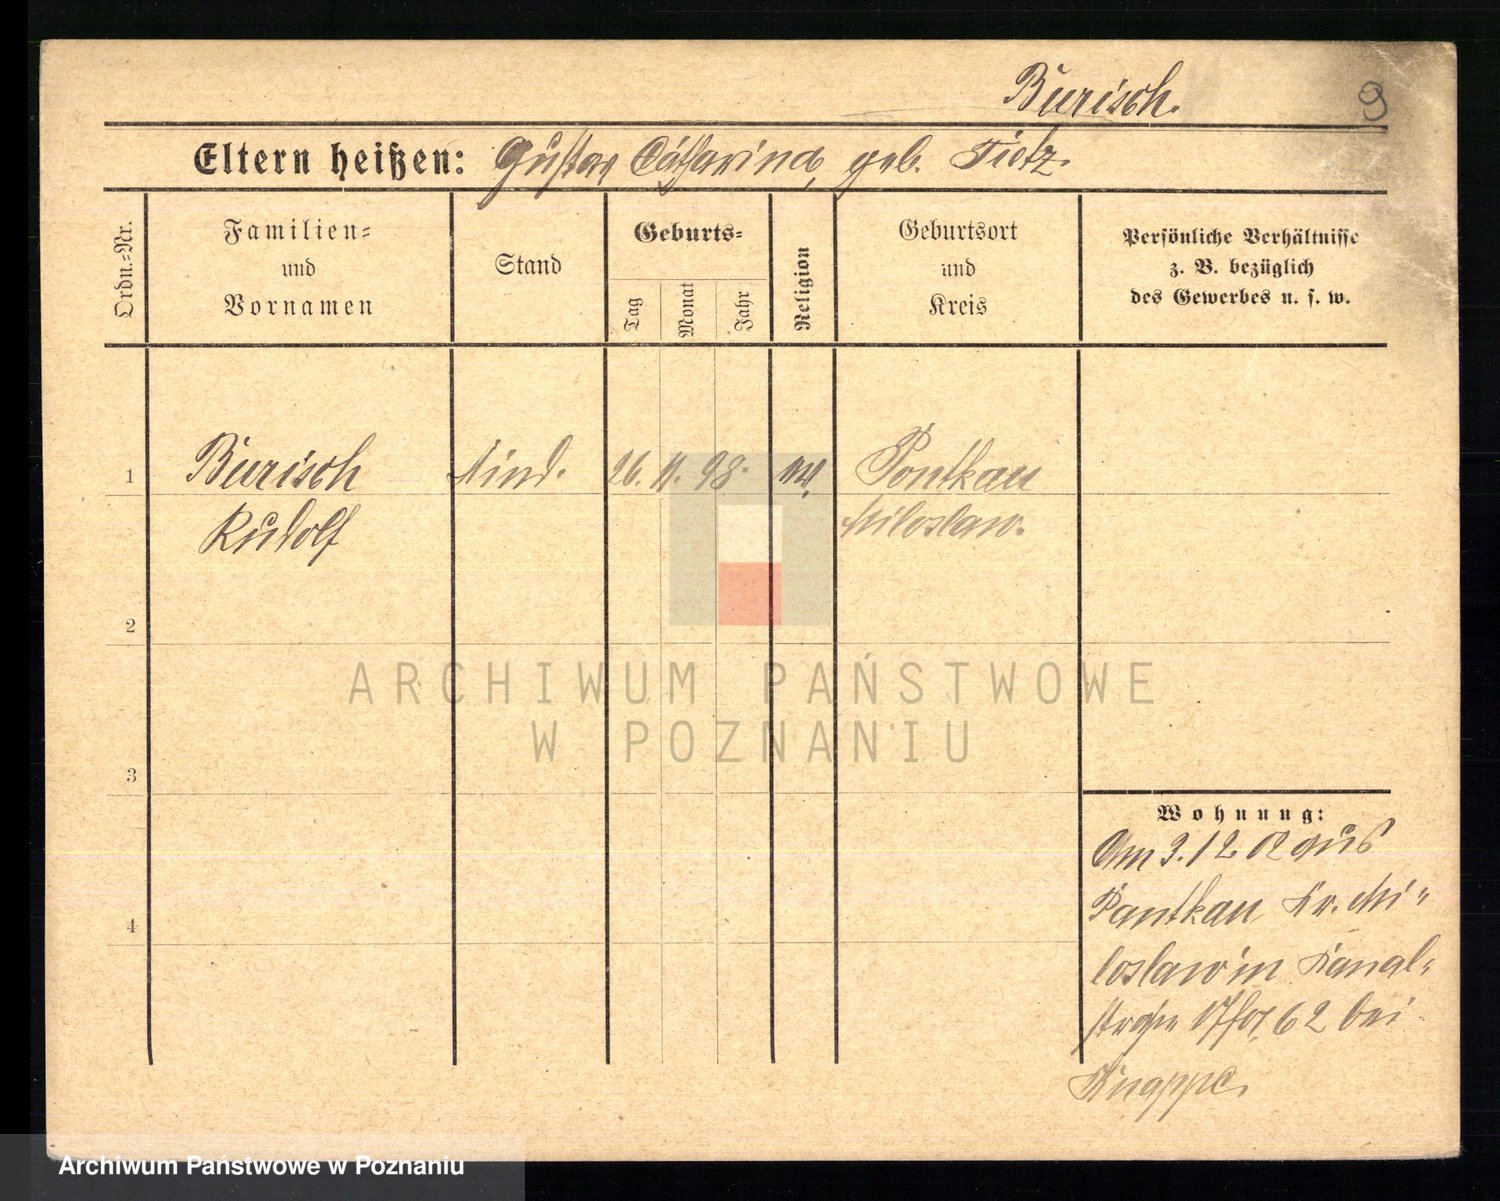 Burisch.
9
Eltern heißen: Gustav Catharina, geb. Tietz.
Ordn.=Nr.
Familien=
und
Vornamen
Stand
Geburts=
Tag
Monat
Jahr
Religion
Geburtsort
und
Kreis
Persönliche Verhältnisse
z. B. bezüglich
des Gewerbes u. s. w.
1
Burisch Kind. 26. 11. 98. Pontkau
Rudolf Miloslaw.
2
3
4
ARCHIWUM PAŃSTWOWE
W POZNANIU
Wohnung:
Am 3. 12 02 aus
Pantkau Kr. Mi-
loslaw in Kanal-
62 bei
Knappe.
Archiwum Państwowe w Poznaniu